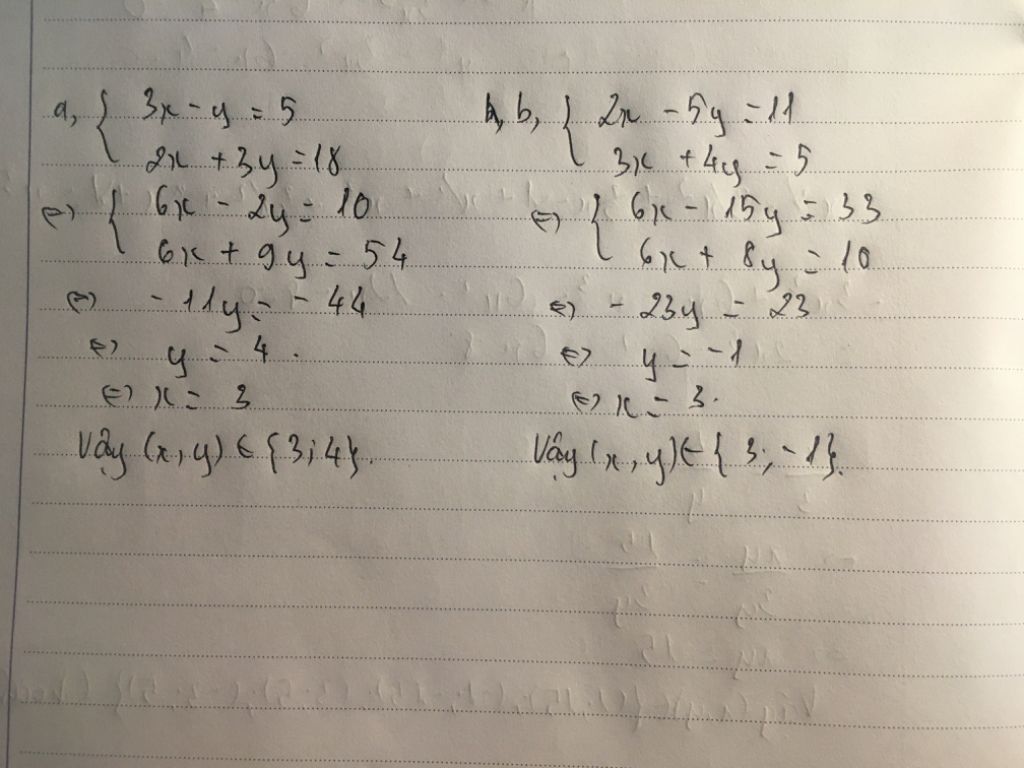 a, { 3x - y = 5
2x + 3y = 18
⇔ { 6x - 2y = 10
6x + 9y = 54
⇔ - 11y = - 44
⇔ y = 4 .
⇔ x = 3
Vậy (x, y) ∈ {3; 4}.
b, { 2x - 5y = 11
3x + 4y = 5
⇔ { 6x - 15y = 33
6x + 8y = 10
⇔ - 23y = 23
⇔ y = -1
⇔ x = 3.
Vậy (x, y) ∈ { 3; -1}.